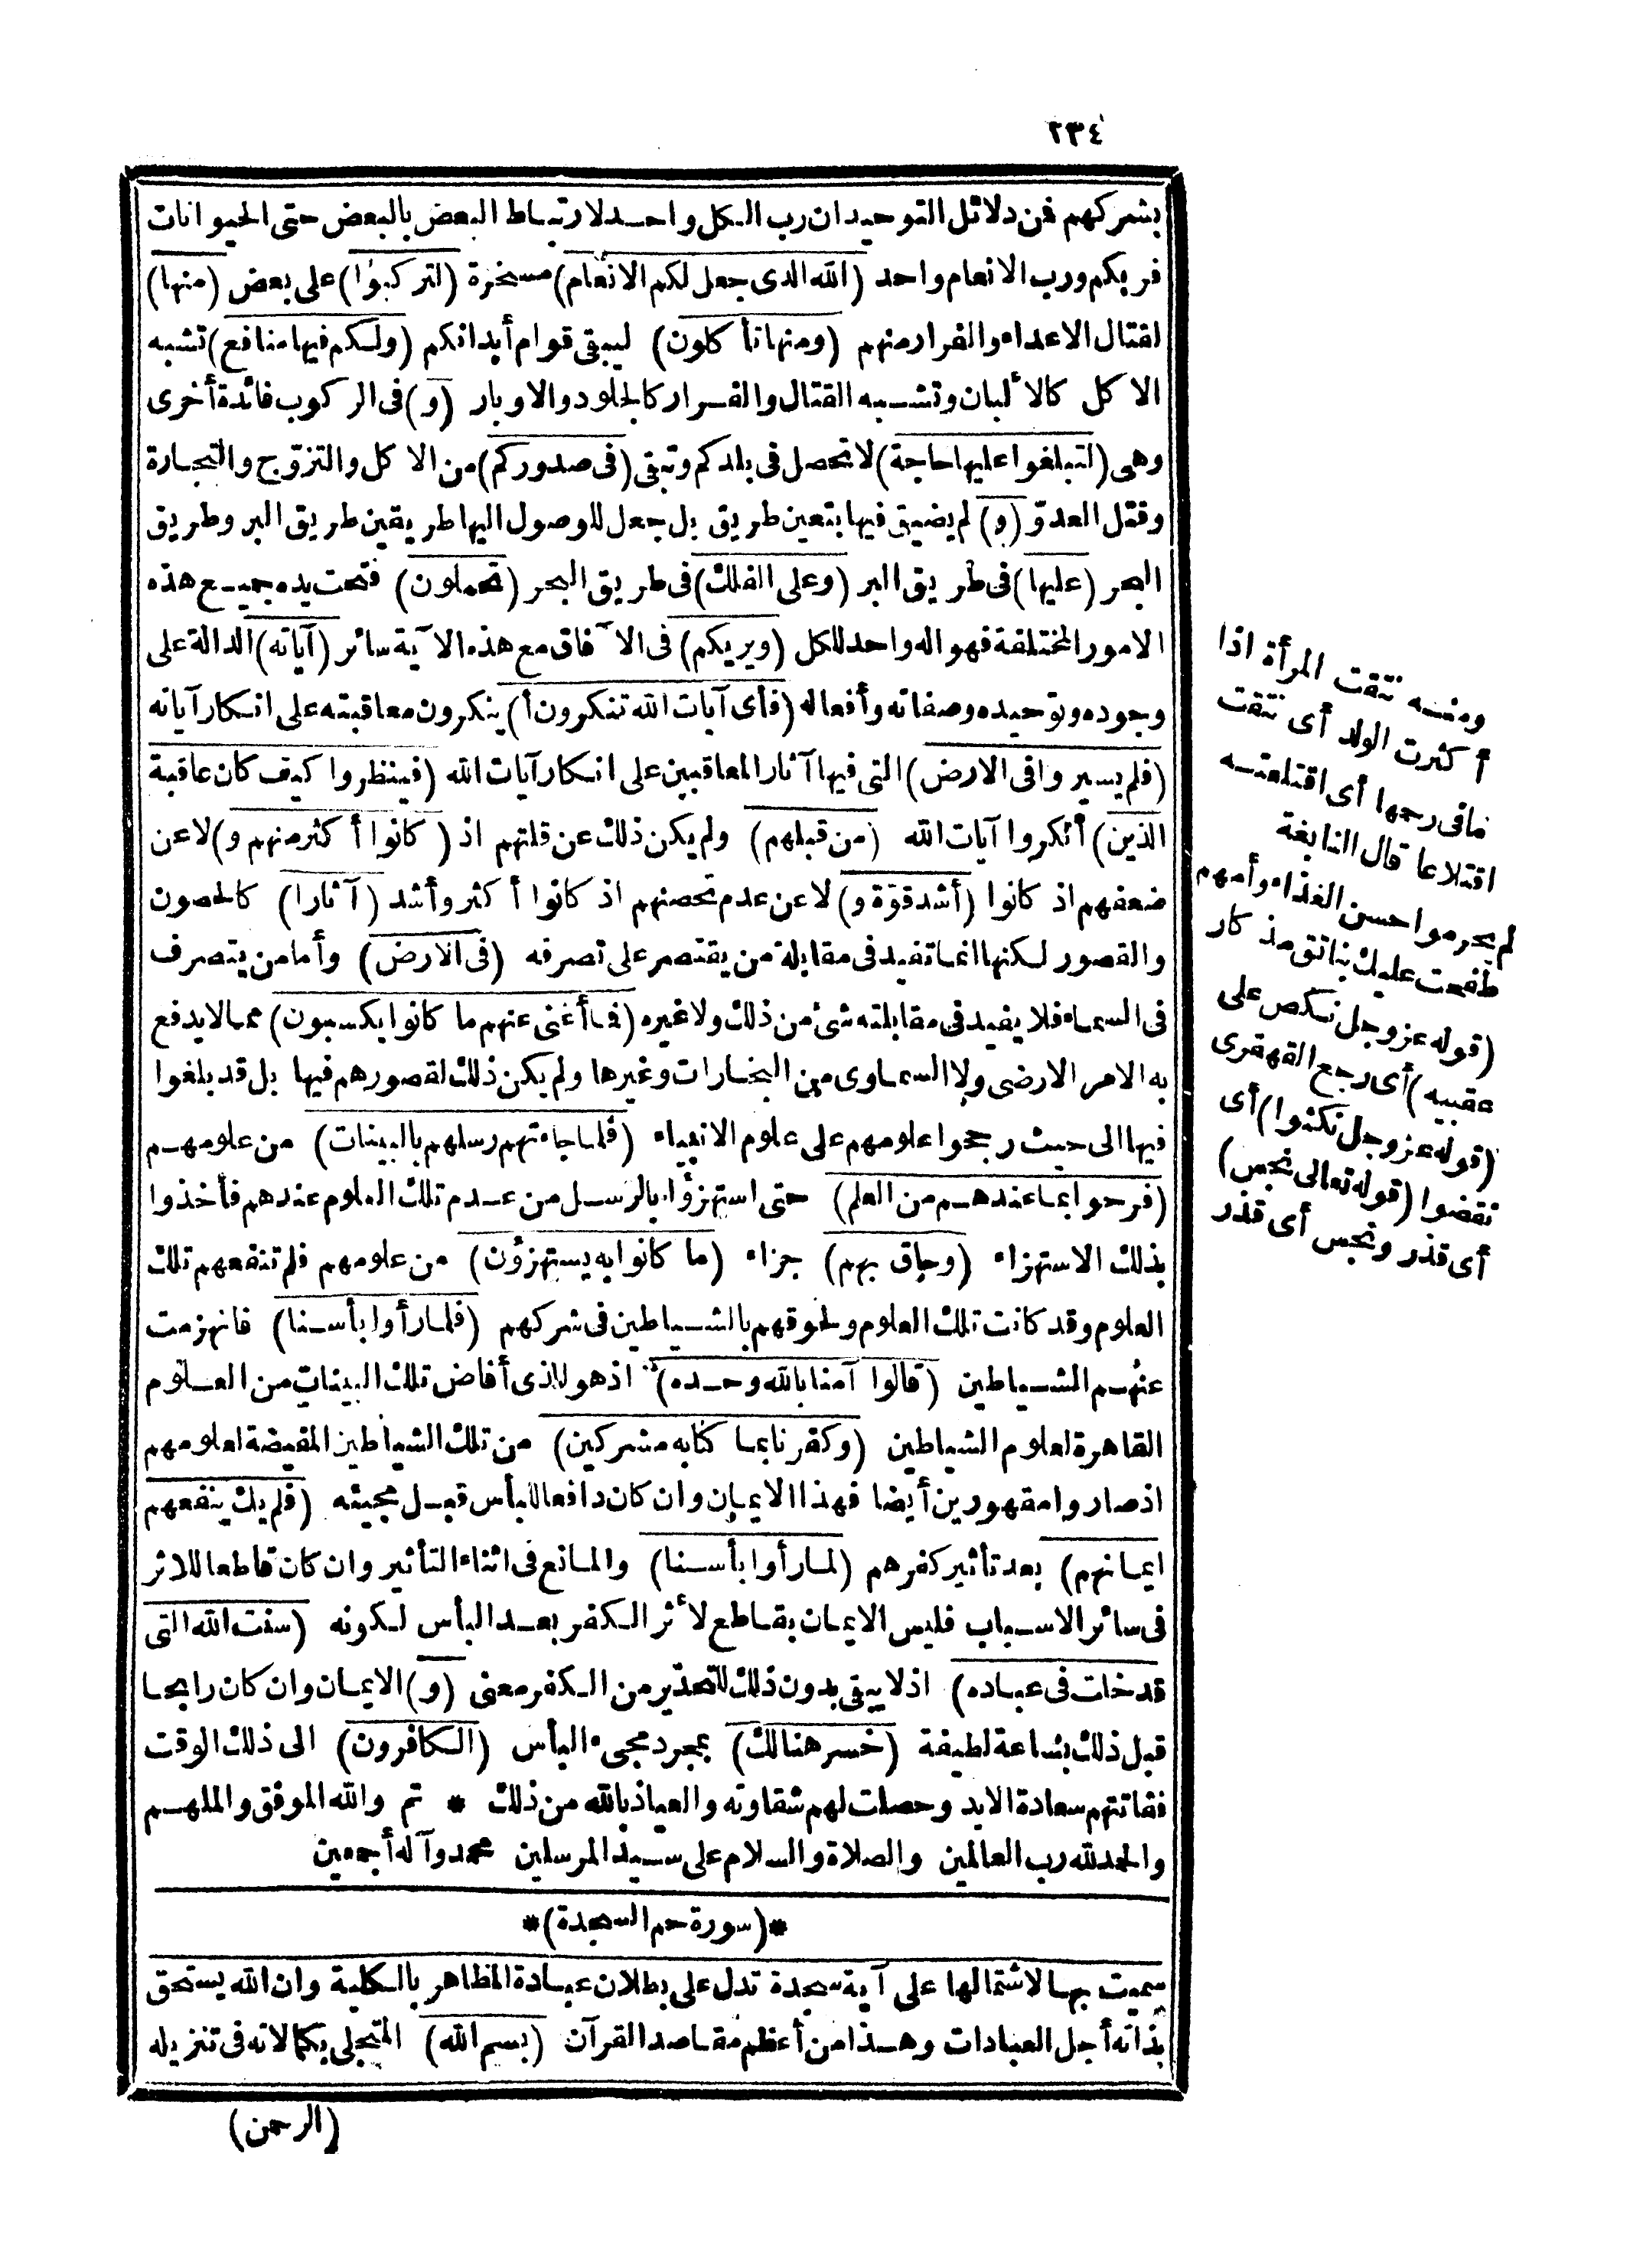 ٢٣٤
بشركهم فمن دلائل التوحيد ان رب الكل واحد لارتباط البعض بالبعض حتى الحيوانات
فربكم ورب الانعام واحد (الله الذى جعل لكم الانعام) مسخرة (لتركبوا) على بعض (منها)
لقتال الاعداء والفرار منهم (ومنها تأكلون) ليبقى قوام أبدانكم (ولكم فيها منافع) تشبه
الاكل كالألبان وتشبه القتال والفرار كالجلود والاوبار (و) فى الركوب فائدة أخرى
وهى (لتبلغوا عليها حاجة) لا تحصل فى بلدكم وتبقى (فى صدوركم) من الاكل والتزوّج والتجارة
وقتل العدوّ (و) لم يضيق فيها بتعين طريق بل جعل للوصول اليها طريقين طريق البر وطريق
البحر (عليها) فى طريق البر (وعلى الفلك) فى طريق البحر (تحملون) فتحت يده جميع هذه
الامور المختلفة فهو اله واحد للكل (ويريكم) فى الآفاق مع هذه الآية سائر (آياته) الدالة على
وجوده وتوحيده وصفاته وأفعاله (فأى آيات الله تنكرون أ) ينكرون معاقبته على انكار آياته
(فلم يسيروا فى الارض) التى فيها آثار المعاقبين على انكار آيات الله (فينظروا كيف كان عاقبة
الذين) أنكروا آيات الله (من قبلهم) ولم يكن ذلك عن قلتهم اذ (كانوا أكثر منهم و) لا عن
ضعفهم اذ كانوا (أشد قوّة و) لا عن عدم تحصنهم اذ كانوا أكثر وأشد (آثارا) كالحصون
والقصور لكنها انما تفيد فى مقابلة من يقتصر على تصرفه (فى الارض) وأما من يتصرف
فى السماء فلا يفيد فى مقابلته شئ من ذلك ولا غيره (فما أغنى عنهم ما كانوا يكسبون) مما لا يدفع
به الامر الارضى ولا السماوى من البخارات وغيرها ولم يكن ذلك لقصورهم فيها بل قد بلغوا
فيها الى حيث رجحوا علومهم على علوم الانبياء (فلما جاءتهم رسلهم بالبينات) من علومهم
(فرحوا بما عندهم من العلم) حتى استهزؤا بالرسل من عدم تلك العلوم عندهم فأخذوا
بذلك الاستهزاء (وحاق بهم) جزاء (ما كانوا به يستهزؤن) من علومهم فلم تنفعهم تلك
العلوم وقد كانت تلك العلوم ولحوقهم بالشياطين فى شركهم (فلما رأوا بأسنا) فانهزمت
عنهم الشياطين (قالوا آمنا بالله وحده) اذ هو الذى أفاض تلك البينات من العلوم
القاهرة لعلوم الشياطين (وكفرنا بما كنا به مشركين) من تلك الشياطين المفيضة لعلومهم
اذ صاروا مقهورين أيضا فهذا الايمان وان كان دافعا للبأس قبل مجيئه (فلم يك ينفعهم
ايمانهم) بعد تأثير كفرهم (لما رأوا بأسنا) والمانع فى اثناء التأثير وان كان قاطعا للاثر
فى سائر الاسباب فليس الايمان بقاطع لأثر الكفر بعد البأس لكونه (سنت الله التى
قد خلت فى عباده) اذ لا يبقى بدون ذلك للتحذير من الكفر معنى (و) الايمان وان كان رابحا
قبل ذلك بساعة لطيفة (خسر هنالك) بمجرد مجىء البأس (الكافرون) الى ذلك الوقت
ففاتتهم سعادة الابد وحصلت لهم شقاوته والعياذ بالله من ذلك * تم والله الموفق والملهم
والحمد لله رب العالمين والصلاة والسلام على سيد المرسلين محمد وآله أجمعين
*(سورة حم السجدة)*
سميت بها لاشتمالها على آية سجدة تدل على بطلان عبادة المظاهر بالكلية وان الله يستحق
بذاته أجل العبادات وهذا من أعظم مقاصد القرآن (بسم الله) المتجلى بكمالاته فى تنزيله
(الرحمن)
ومنه نتقت المرأة اذا
أكثرت الولد أى نتقت
مافى رحمها أى اقتلعته
اقتلاعا قال النابغة
لم يحرموا حسن الغذاء وأمهم
طفحت عليك بناتق مذكار
(قوله عز وجل نكص على
عقبيه) أى رجع القهقرى
(قوله عز وجل نكثوا) أى
نقضوا (قوله تعالى نجس)
أى قذر ونجس أى قذر